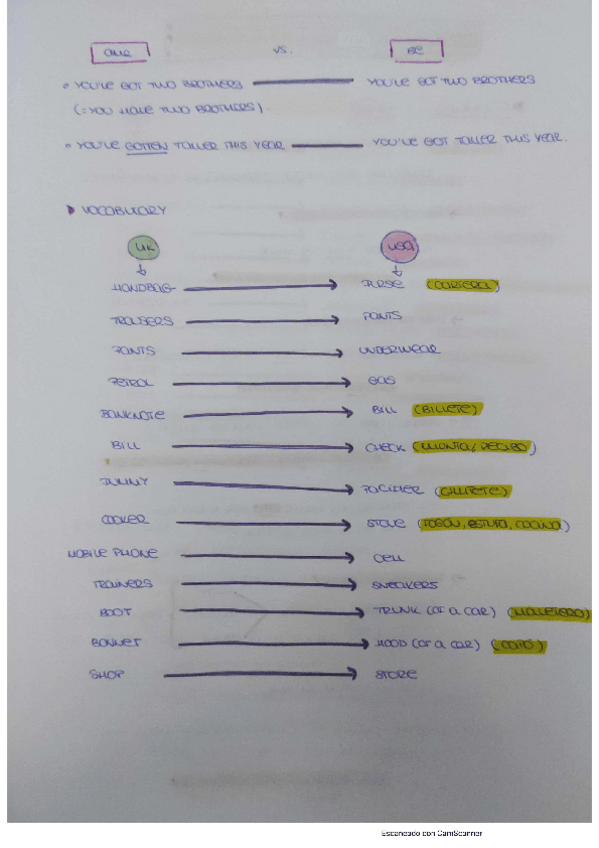 AME VS. BE
• YOU'VE GOT TWO BROTHERS YOU'VE GOT TWO BROTHERS
(= YOU HAVE TWO BROTHERS).
• YOU'VE GOTTEN TALLER THIS YEAR YOU'VE GOT TALLER THIS YEAR.
VOCABULARY
UK USA
HANDBAG → PURSE (CARTERA)
TROUSERS → PANTS
PANTS → UNDERWEAR
PETROL → GAS
BANKNOTE → BILL (BILLETE)
BILL → CHECK (CUENTA/RECIBO)
DUMMY → PACIFIER (CHUPETE)
COOKER → STOVE (FOGÓN, ESTUFA, COCINA)
MOBILE PHONE → CELL
TRAINERS → SNEAKERS
BOOT → TRUNK (OF A CAR) (MALETERO)
BONNET → HOOD (OF A CAR) (CAPÓ)
SHOP → STORE
Escaneado con CamScanner